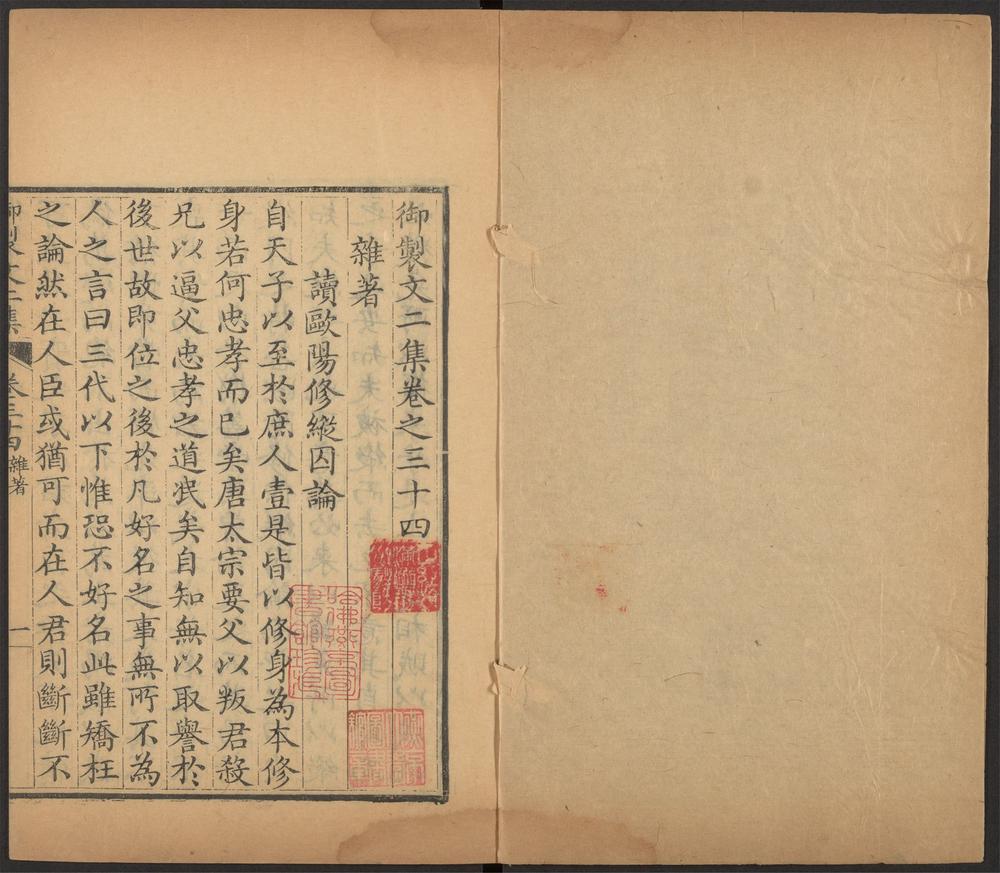 御製文二集卷之三十四
雜著
讀歐陽修縱囚論
自天子以至於庶人壹是皆以修身為本修
身若何忠孝而已矣唐太宗要父以叛君殺
兄以逼父忠孝之道泯矣自知無以取譽於
後世故即位之後於凡好名之事無所不為
人之言曰三代以下惟恐不好名此雖矯枉
之論然在人臣或猶可而在人君則斷斷不
御製文二集
卷三十四 雜著
一
哈佛燕京圖書館珍藏